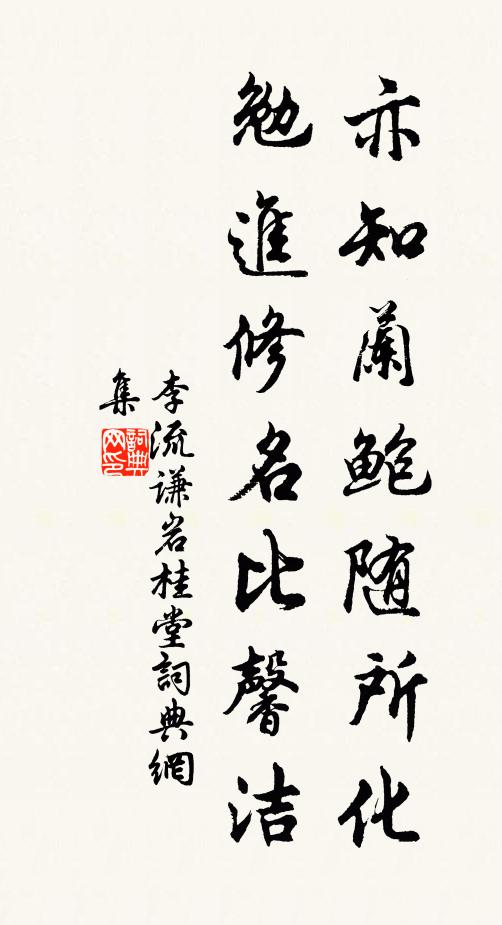 亦知蘭鮑随所化
勉進修名比馨洁
李流谦岩桂堂詞典網
集
詞典
网印